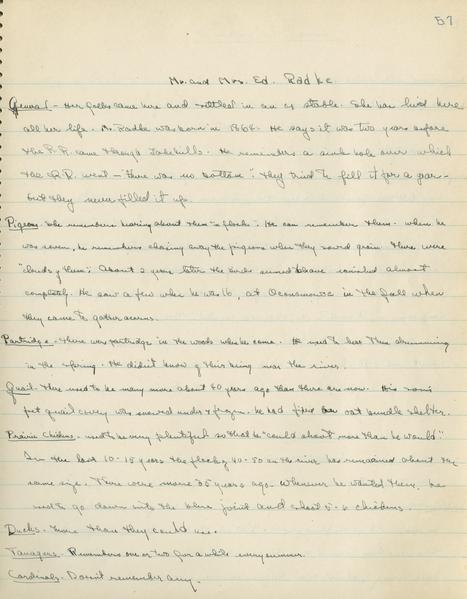 57
Mr. and Mrs. Ed. Radke
General - Her folks came here and settled in an old stable. She has lived here
all her life. Mr. Radke was born in 1864. He says it was two years before
the R.R. came through. He remembers a sink hole over which
the R.R. went - There was no bottom". They tried to fill it for a year-
but they never filled it up.
Pigeons - She remembers hearing about them in flocks". He can remember them. When he
was seven, he remembers chasing away the pigeons when they sowed grain. There were
"clouds of them". About 2 years later the birds seemed to have vanished almost
completely. He saw a few when he was 16, at Oconomowoc in the fall when
they came to gather acorns.
Partridge - There was partridge in the woods when he came. He used to hear them drumming
in the spring. He didn't know of this being near the river.
Quail. There used to be many more about 40 years ago than there are now. His son's
pet quail covey was snowed under & froze. He had fixed an oat bundle shelter.
Prairie Chickens - used to be very plentiful so that he "could shoot more than he would"
In the last 10-15 years the flock of 40-50 on the river has remained about the
same size. There were more 35 years ago. Whenever he wanted them, he
used to go down into the blue joint and shoot 5-6 chickens.
Ducks - more than they could use.
Tanagers. Remembers one or two for a while every summer.
Cardinals - Doesn't remember any.